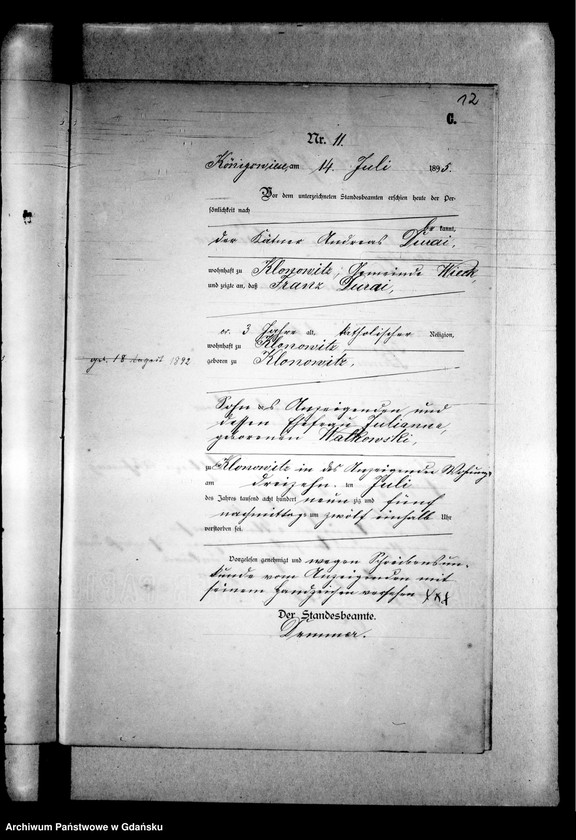 12
C.
Nr. 11.
Königswiese am 14 Juli 1895.
Vor dem unterzeichneten Standesbeamten erschien heute der Per-
sönlichkeit nach
be kannt,
der Kätner Andreas Durai,
wohnhaft zu Klonowitz, Gemeinde Wieck,
und zeigte an, daß Franz Durai,
3 Jahre alt, katholischer Religion,
wohnhaft zu Klonowitz
geboren zu Klonowitz,
geb. 18 August 1892
Sohn des Anzeigenden und
dessen Ehefrau Julianna,
geborenen Walkowski,
zu Klonowitz in des Anzeigenden Wohnung
am dreizehn ten Juli
des Jahres tausend acht hundert neun zig und fünf
nachmittags um zwölf einhalb Uhr
verstorben sei.
Vorgelesen genehmigt und wegen Schreibensun-
kunde vom Anzeigenden mit
seinem Handzeichen versehen xxx
Der Standesbeamte.
Demmer.
Archiwum Państwowe w Gdańsku